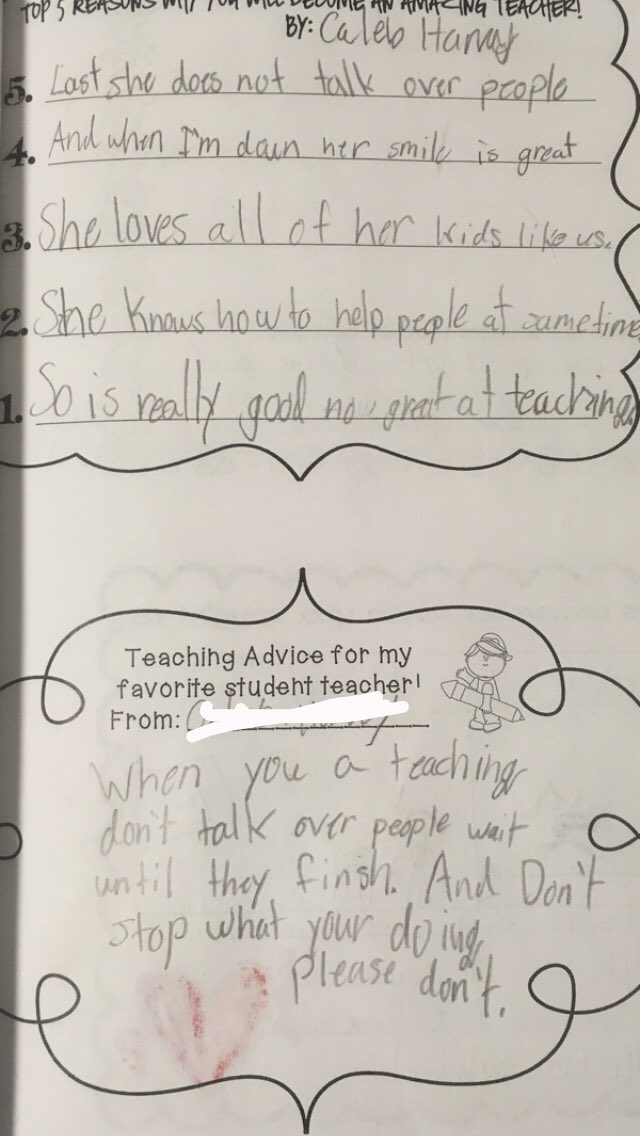 TOP 5 REASONS WHY YOU WILL BECOME AN AMAZING TEACHER!
BY: Caleb Harvey
5. Last she does not talk over people
4. And when I'm daun her smile is great
3. She loves all of her kids like us.
2. She knows how to help people at sametime
1. So is really good no, great at teaching
Teaching Advice for my
favorite student teacher!
From:
When you a teaching
don't talk over people wait
until they finsh. And Don't
stop what your doing
please don't.